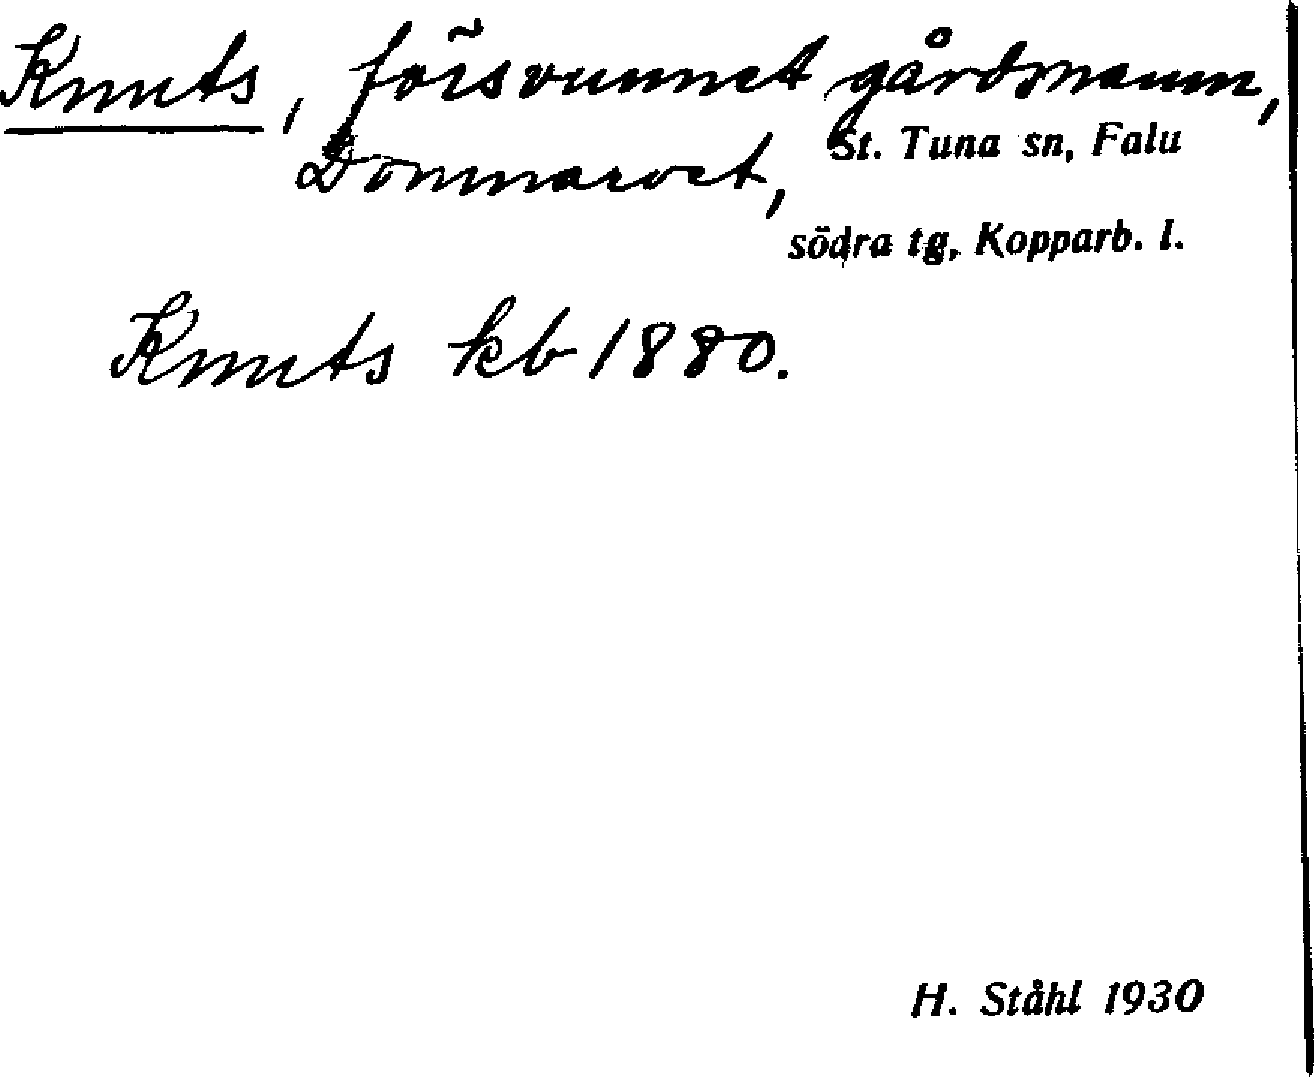 Knuts, försvunnet gårdsnamn,
Dommarvet, St. Tuna sn, Falu
södra tg, Kopparb. l.
Knuts kb 1880.
H. Ståhl 1930